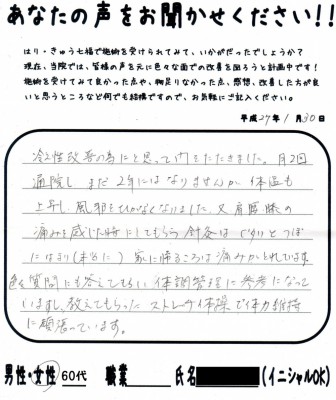 あなたの声をお聞かせください!!
はり・きゅう七福で施術を受けられてみて、いかがだったでしょうか?
現在、当院では、皆様の声を元に色々な面での改善を図ろうと計画中です!
施術を受けてみて良かった点や、物足りなかった点、感想、改善した方が良
いと思うところなど何でも結構ですので、お気軽にご記入ください。
平成27年1月30日
冷え性改善の為にと思って門をたたきました。月2回
通院し まだ2年にはなりませんが 体温も
上昇し、風邪をひかなくなりました。又肩腰膝の
痛みを感じた時にしてもらう針灸は ピタリとつぼ
にはまり(まさに) 家に帰るころは痛みがとれています
色々質問にも答えてもらい 体調管理に参考になって
いますし、教えてもらったストレッチ体操で体力維持
に頑張っています。
男性・女性 60代 職業 氏名 (イニシャルOK)